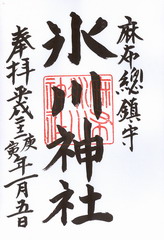 麻布總鎮守
氷川神社
奉拝 平成二十二庚寅年一月五日